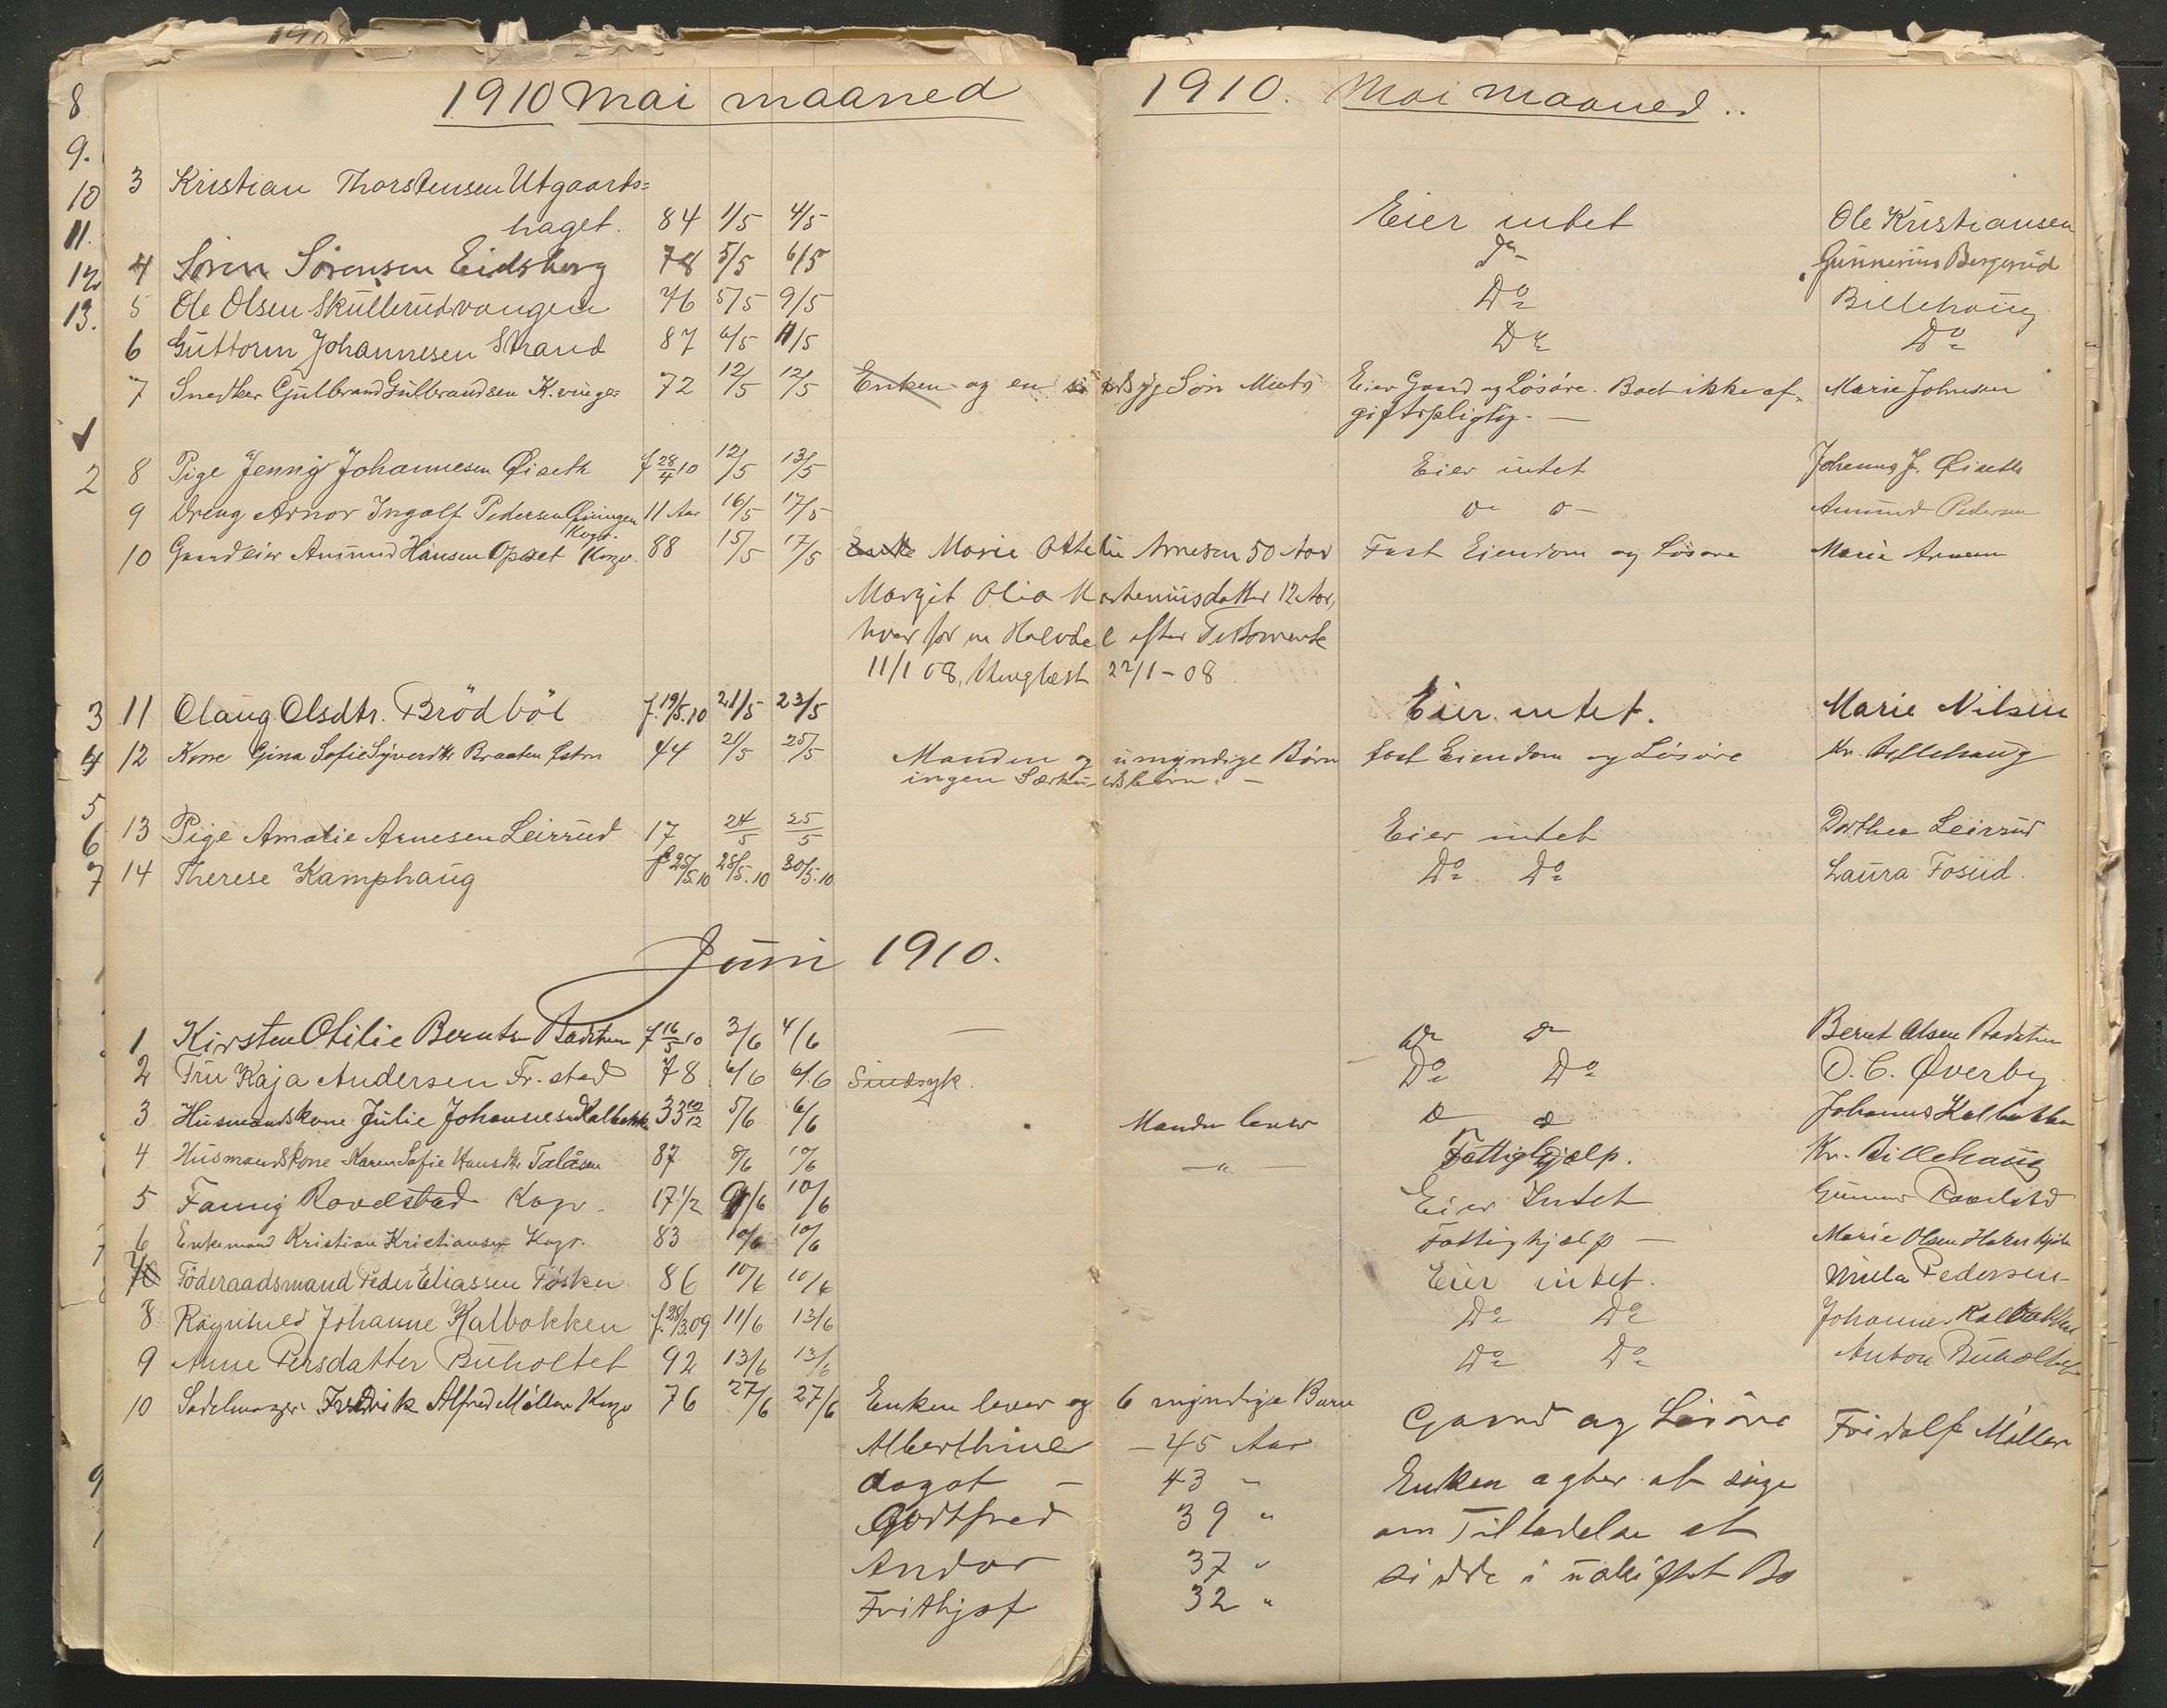 1910 Mai maaned
1910. Mai maaned..
8
9.
10
11.
12
13.
2
3
4
5
6
7
9
3 Kristian Thorstensen Utgaards=
haget. 84 1/5 4/5 Eier intet Ole Kristiansen
4 Sören Sörensen Eidsberg 78 5/5 6/5 Do Gunnerius Bergerud
5 Ole Olsen Skullerudvangen 76 5/5 9/5 Do Billehaug
6 Guttorm Johannesen Strand 87 6/5 11/5 Do Do
7 Snedker Gulbrand Gulbrandsen K.vinger 72 12/5 12/5 Enken og en Søn Eier Gaard og Løsøre. Boet ikke af- Marie Johnsen
giftspligtig. —
8 Pige Jenny Johannesen Øiseth f 28/4 10 12/5 13/5 Eier intet Johannes J. Øiseth
9 Dreng Arnor Ingolf Pedersen 11 Aar 16/5 17/5 o- o- Amund Pedersen
Kogv.
10 Gaardeier Amund Hansen Opset Kogv. 88 15/5 17/5 Enke Marie Ottilie Arnesen 50 Aar Fast Eiendom og Løsøre Marie Arnesen
Margit Olia Marteniusdatter 12 Aar,
hver for en Halvdel efter Testamente
11/1 08, thinglæst 22/1-08
11 Olaug Olsdtr. Brödböl f. 19/5.10 21/5 23/5 Eier intet. Marie Nilsen
12 Kone Gina Sofie Syverdtr Braaten 44 21/5 25/5 Manden og umyndige Børn fast Eiendom og Løsøre Kr. Billehaug
ingen Særkuldsbørn. —
13 Pige Amalie Arnesen Leirrud 17 24/5 25/5 Eier intet Dorthea Leirrud
14 Therese Kamphaug f 25/5.10 28/5.10 30/5.10 Do Do Laura Fosud.
Juni 1910.
1 Kirsten Otilie Berntsn Badstuen f 16/5 10 3/6 4/6 — Do Do Bernt Olsen Badstuen
2 Fru Kaja Andersen Fr.stad 78 6/6 6/6 Sindsyk. Do Do O. C. Øverby
3 Husmandskone Julie Johannesen Kalbakken 33 10/12 5/6 6/6 Manden lever Do Do Johannes Kalbakken
4 Husmandskone Karen Sofie Hansdtr Talåsen 87 9/6 10/6 — " — Fattighjælp. Kr. Billehaug
5 Fanny Rovelstad Kogv. 17 1/2 9/6 10/6 Eier Intet Gunnar Rovelstad
6 Enkemand Kristian Kristiansen Kogv. 83 10/6 10/6 Fattighjælp — Marie Olsen
7 Föderaadsmand Peder Eliassen Fösker 86 10/6 10/6 Eier intet. Mila Pedersen
8 Ragnhild Johanne Kalbakken f. 28/3.09 11/6 13/6 Do Do Johannes Kalbakken
9 Anne Persdatter Buholtet 92 13/6 13/6 Do Do Anton Buholtet
10 Sadelmager Fredrik Alfred Möller Kogv 76 27/6 27/6 Enken lever og 6 myndige Børn Gaard og Løsøre Fridolf Möller
Alberthine — 45 Aar
Dagat — 43 " Enken agter at søge
Godtfred 39 " om Tilladelse at
Andor 37 " sidde i uskiftet Bo
Frithjof 32 "